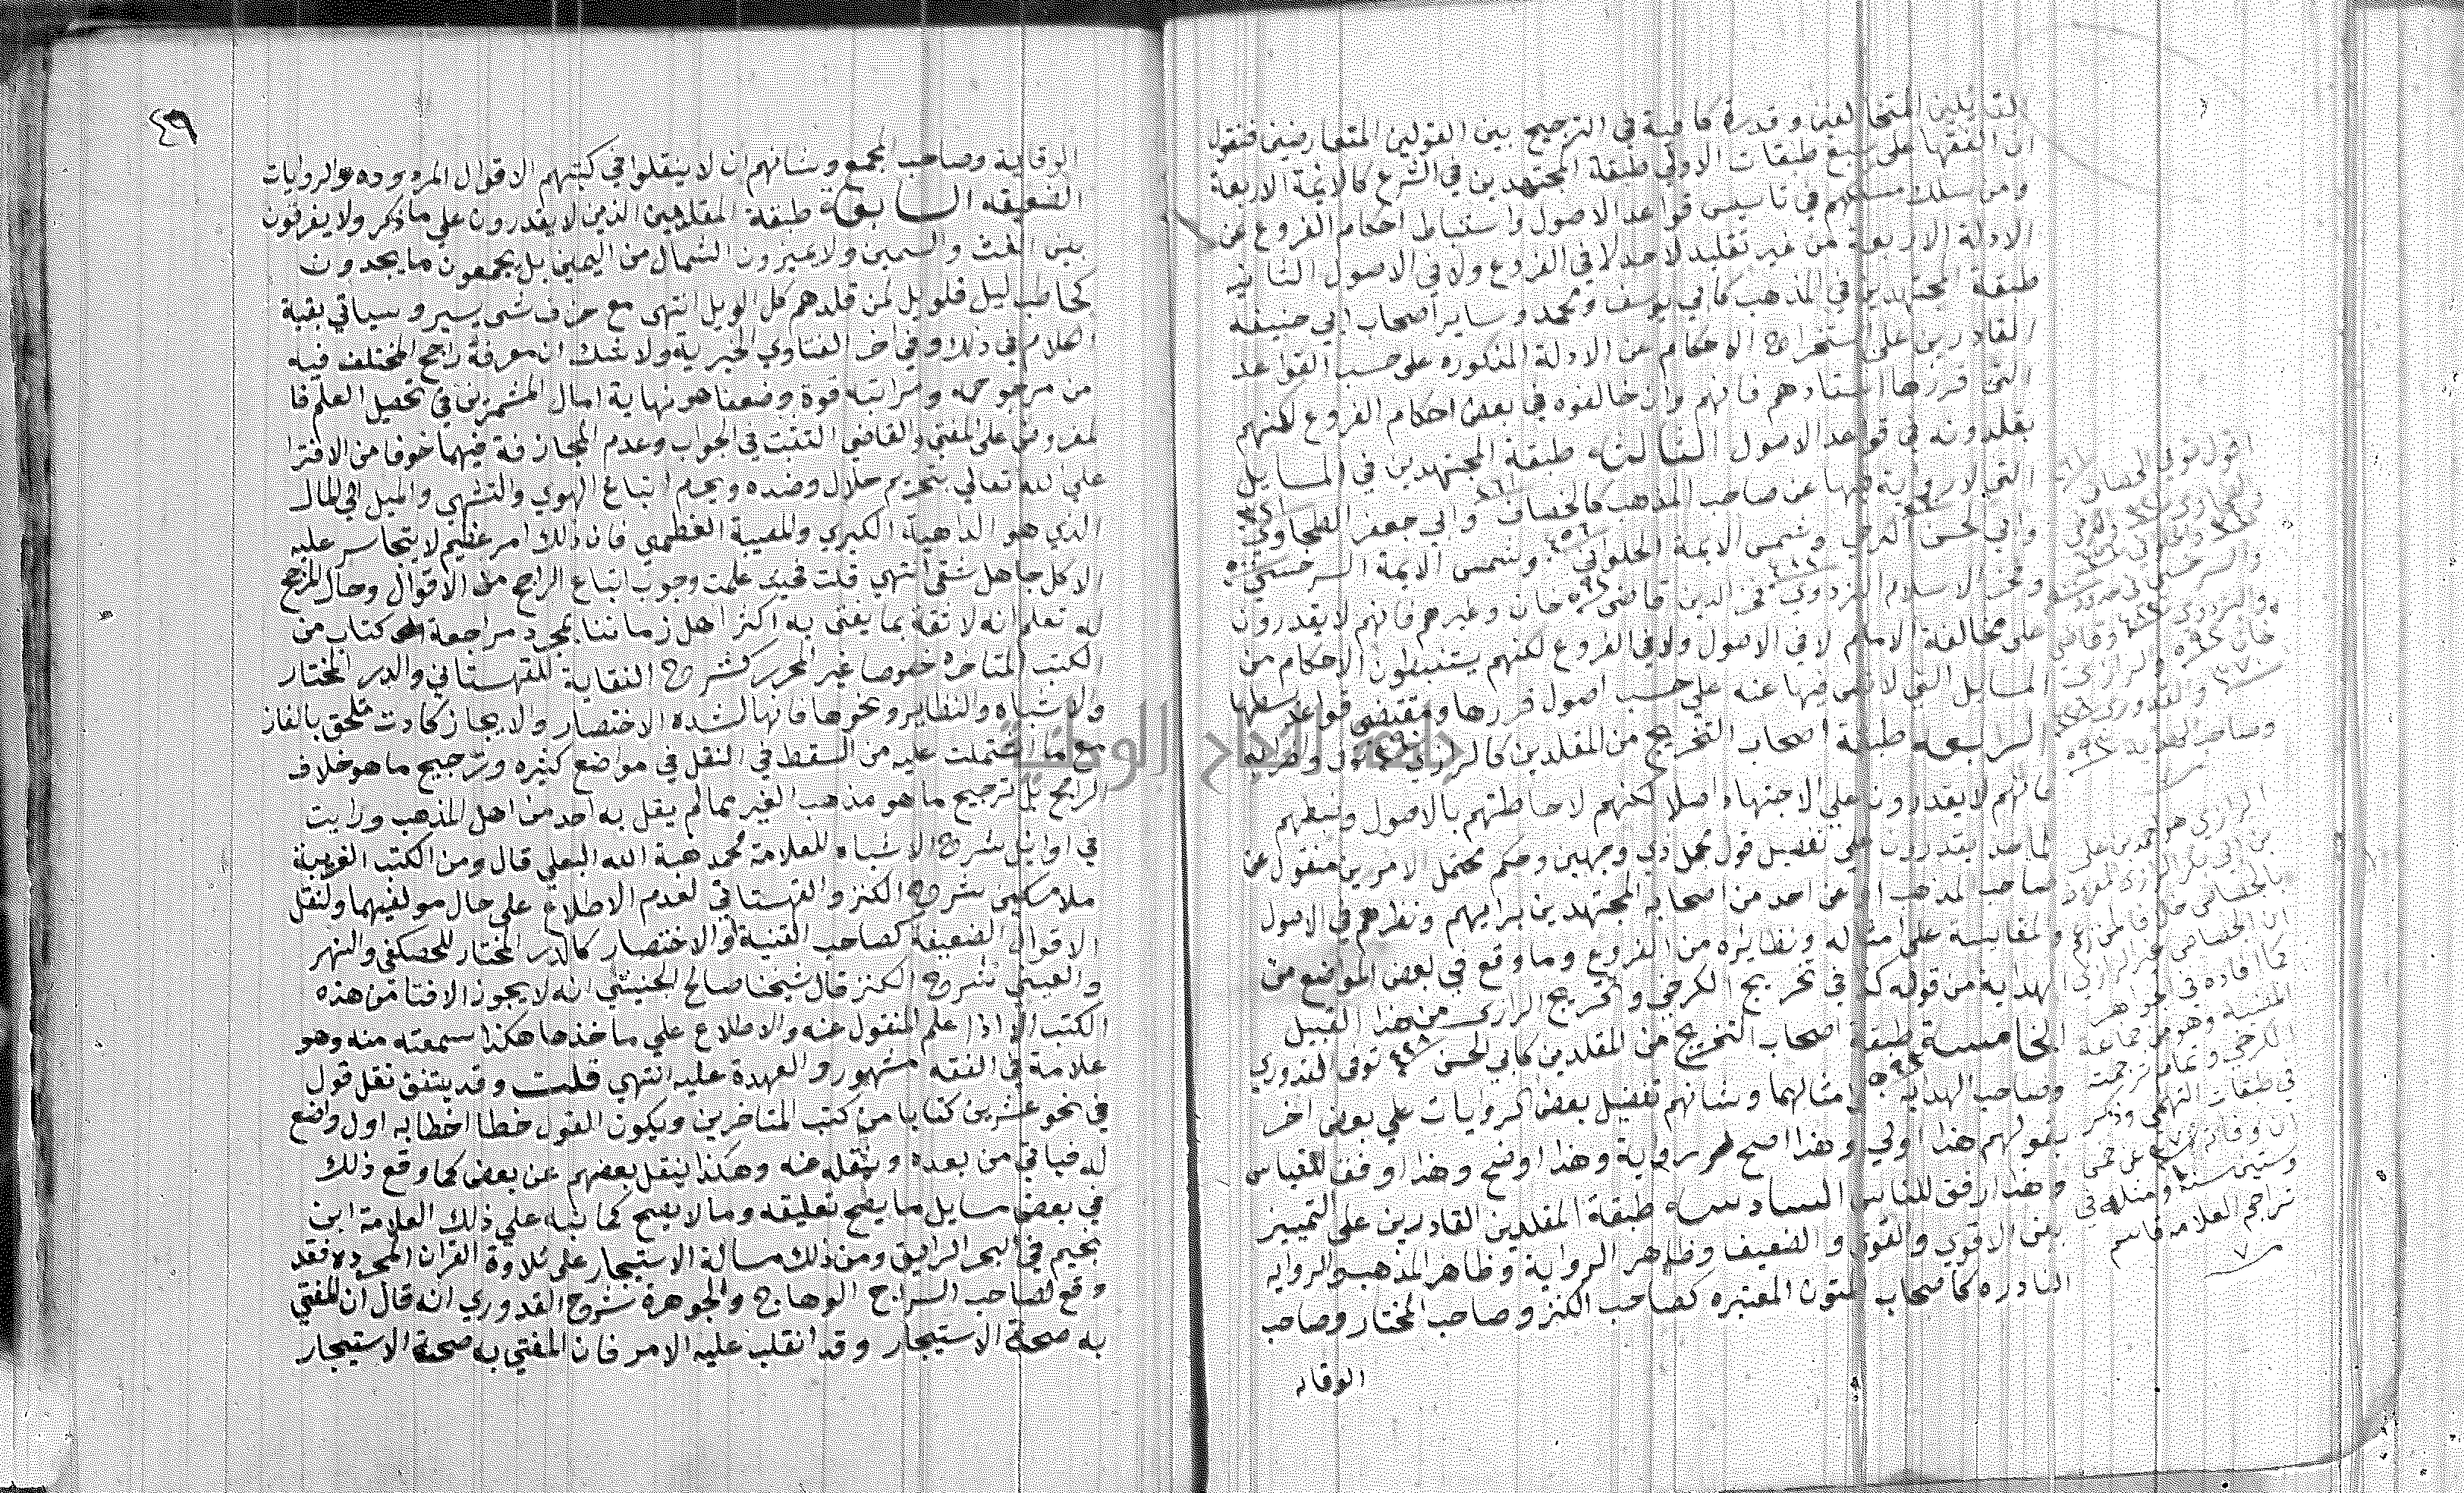 القايلين المتخالفين وقدرة كافية في الترجيح بين القولين المتعارضين فنقول
ان الفقها على سبع طبقات الاولي طبقة المجتهدين في الشرع كالائمة الاربعة
ومن سلك مسلكهم في تاسيس قواعد الاصول واستنباط احكام الفروع عن
الادلة الاربعة من غير تقليد لاحد لا في الفروع ولا في الاصول الثانيه
طبقة المجتهدين في المذهب كابي يوسف ومحمد وساير اصحاب ابي حنيفه
القادرين على استخراج الاحكام عن الادلة المذكوره على حسب القواعد
التي قررها استادهم فانهم وان خالفوه في بعض احكام الفروع لكنهم
يقلدونه في قواعد الاصول الثالثه طبقة المجتهدين في المسايل
التي لا رواية فيها عن صاحب المذهب كالخصاف وابي جعفر الطحاوي
وابي الحسن الكرخي وشمس الايمة الحلواني وشمس الايمة السرخسي
وفخر الاسلام البزدوي فخر الدين قاضى خان وغيرهم فانهم لا يقدرون
على مخالفة الامام لا في الاصول ولا في الفروع لكنهم يستنبطون الاحكام من
المسايل التي لا نص فيها عنه على حسب اصول قررها ومقتضى قواعد بسطها
الرابعه طبقة اصحاب التخريج من المقلدين كالرازي واضرابه
فانهم لا يقدرون علي الاجتهاد اصلا لكنهم لاحاطتهم بالاصول وضبطهم
للماخذ يقدرون علي تفصيل قول مجمل ذي وجهين وحكم محتمل الامرين منقول عن
صاحب المذهب او عن احد من اصحابه المجتهدين برايهم ونظرهم في الاصول
والمقايسة على امثاله ونظائره من الفروع وما وقع في بعض المواضع من
الهداية من قوله كذا في تخريج الكرخي وتخريج الرازي من هذا القبيل
الخامسة طبقة اصحاب الترجيح من المقلدين كابي الحسن ٤٢٨ توفى القدوري
وصاحب الهدايه ٥٩٣ وامثالهما وشانهم تفضيل بعض الروايات علي بعض اخر
بقولهم هذا اولي وهذا اصح رواية وهذا اوضح وهذا اوفق للقياس
وهذا ارفق للناس السادسه طبقة المقلدين القادرين على التمييز
بين الاقوي والقوى والضعيف وظاهر الرواية وظاهر المذهب والروايه
النادره كاصحاب المتون المعتبره كصاحب الكنز وصاحب المختار وصاحب
الوقايه
اقول توفي الخصاف
والطحاوي والكرخي
والحلواني
والسرخسي في حدود
والبزدوي وقاضي
خان ٥٩٢ والرازي
٣٧٠ والقدوري ٤٢٨
وصاحب الهداية ٥٩٣
الرازي هو احمد بن علي
بن ابي بكر الرازي المعروف
بالجصاص خلافا لمن زعم
ان الجصاص غير الرازي
كما افاده في الجواهر
المضيه وهو من جماعة
الكرخي وتمام ترجمته
في طبقات التميمي وذكر
ان وفاته ٣٧٠ عن خمس
وستين سنة ومثله في
تراجم العلامه قاسم
٤٩
الوقاية وصاحب المجمع وشانهم ان لا ينقلوا في كتبهم الاقوال المردوده والروايات
الضعيفه السابعة طبقة المقلدين الذين لا يقدرون علي ما ذكر ولا يفرقون
بين الغث والسمين ولا يميزون الشمال من اليمين بل يجمعون ما يجدون
كحاطب ليل فلويل لمن قلدهم كل الويل انتهى مع حذف شى يسير وسياتي بقية
الكلام في ذلك وفي اخر الفتاوي الخيرية ولا شك ان معرفة راجح المختلف فيه
من مرجوحه ومراتبه قوة وضعفا هو نهاية امال المشمرين في تحصيل العلم فا
لمفروض على المفتي والقاضي التثبت في الجواب وعدم المجازفة فيهما خوفا من الافترا
على الله تعالي بتحريم حلال وضده ويحرم اتباع الهوي والتشهي والميل الي المال
الذي هو الداهية الكبري والمصيبة العظمي فان ذلك امر عظيم لا يتجاسر عليه
الا كل جاهل شقي انتهي قلت فحيث علمت وجوب اتباع الراجح من الاقوال وحال المرجح
له تعلم انه لا ثقة بما يفتى به اكثر اهل زماننا بمجرد مراجعة كتاب من
الكتب المتاخره خصوصا غير المحرر كشرح النقاية للقهستاني والدر المختار
والاشباه والنظاير ونحوها فانها لشده الاختصار والايجاز كادت تلحق بالغاز
مع ما اشتملت عليه من السقط في النقل في مواضع كثيره وترجيح ما هو خلاف
الراجح بل ترجيح ما هو مذهب الغير مما لم يقل به احد من اهل المذهب ورايت
في اوائل شرح الاشباه للعلامة محمد هبة الله البعلي قال ومن الكتب الغريبة
ملا مسكين شرح الكنز والقهستاني لعدم الاطلاع علي حال مولفيهما ولنقل
الاقوال الضعيفة كصاحب القنية او لاختصار كالدر المختار للحصكفي والنهر
والعيني شرح الكنز قال شيخنا صالح الجنيني انه لا يجوز الافتا من هذه
الكتب الا اذا علم المنقول عنه والاطلاع علي ماخذها هكذا سمعته منه وهو
علامة في الفقه مشهور والعهدة عليه انتهي قلت وقد يتفق نقل قول
في نحو عشرين كتابا من كتب المتاخرين ويكون القول خطا اخطا به اول واضع
له فياتي من بعده وينقله عنه وهكذا ينقل بعضهم عن بعض كما وقع ذلك
في بعض مسايل ما يصح تعليقه وما لا يصح كما نبه علي ذلك العلامة ابن
نجيم في البحر الرايق ومن ذلك مسالة الاستيجار على تلاوة القران المجرده فقد
وقع لصاحب السراج الوهاج والجوهرة شرح القدوري انه قال ان المفتي
به صحة الاستيجار وقد انقلب عليه الامر فان المفتي به صحة الاستيجار
جامعة النجاح الوطنية